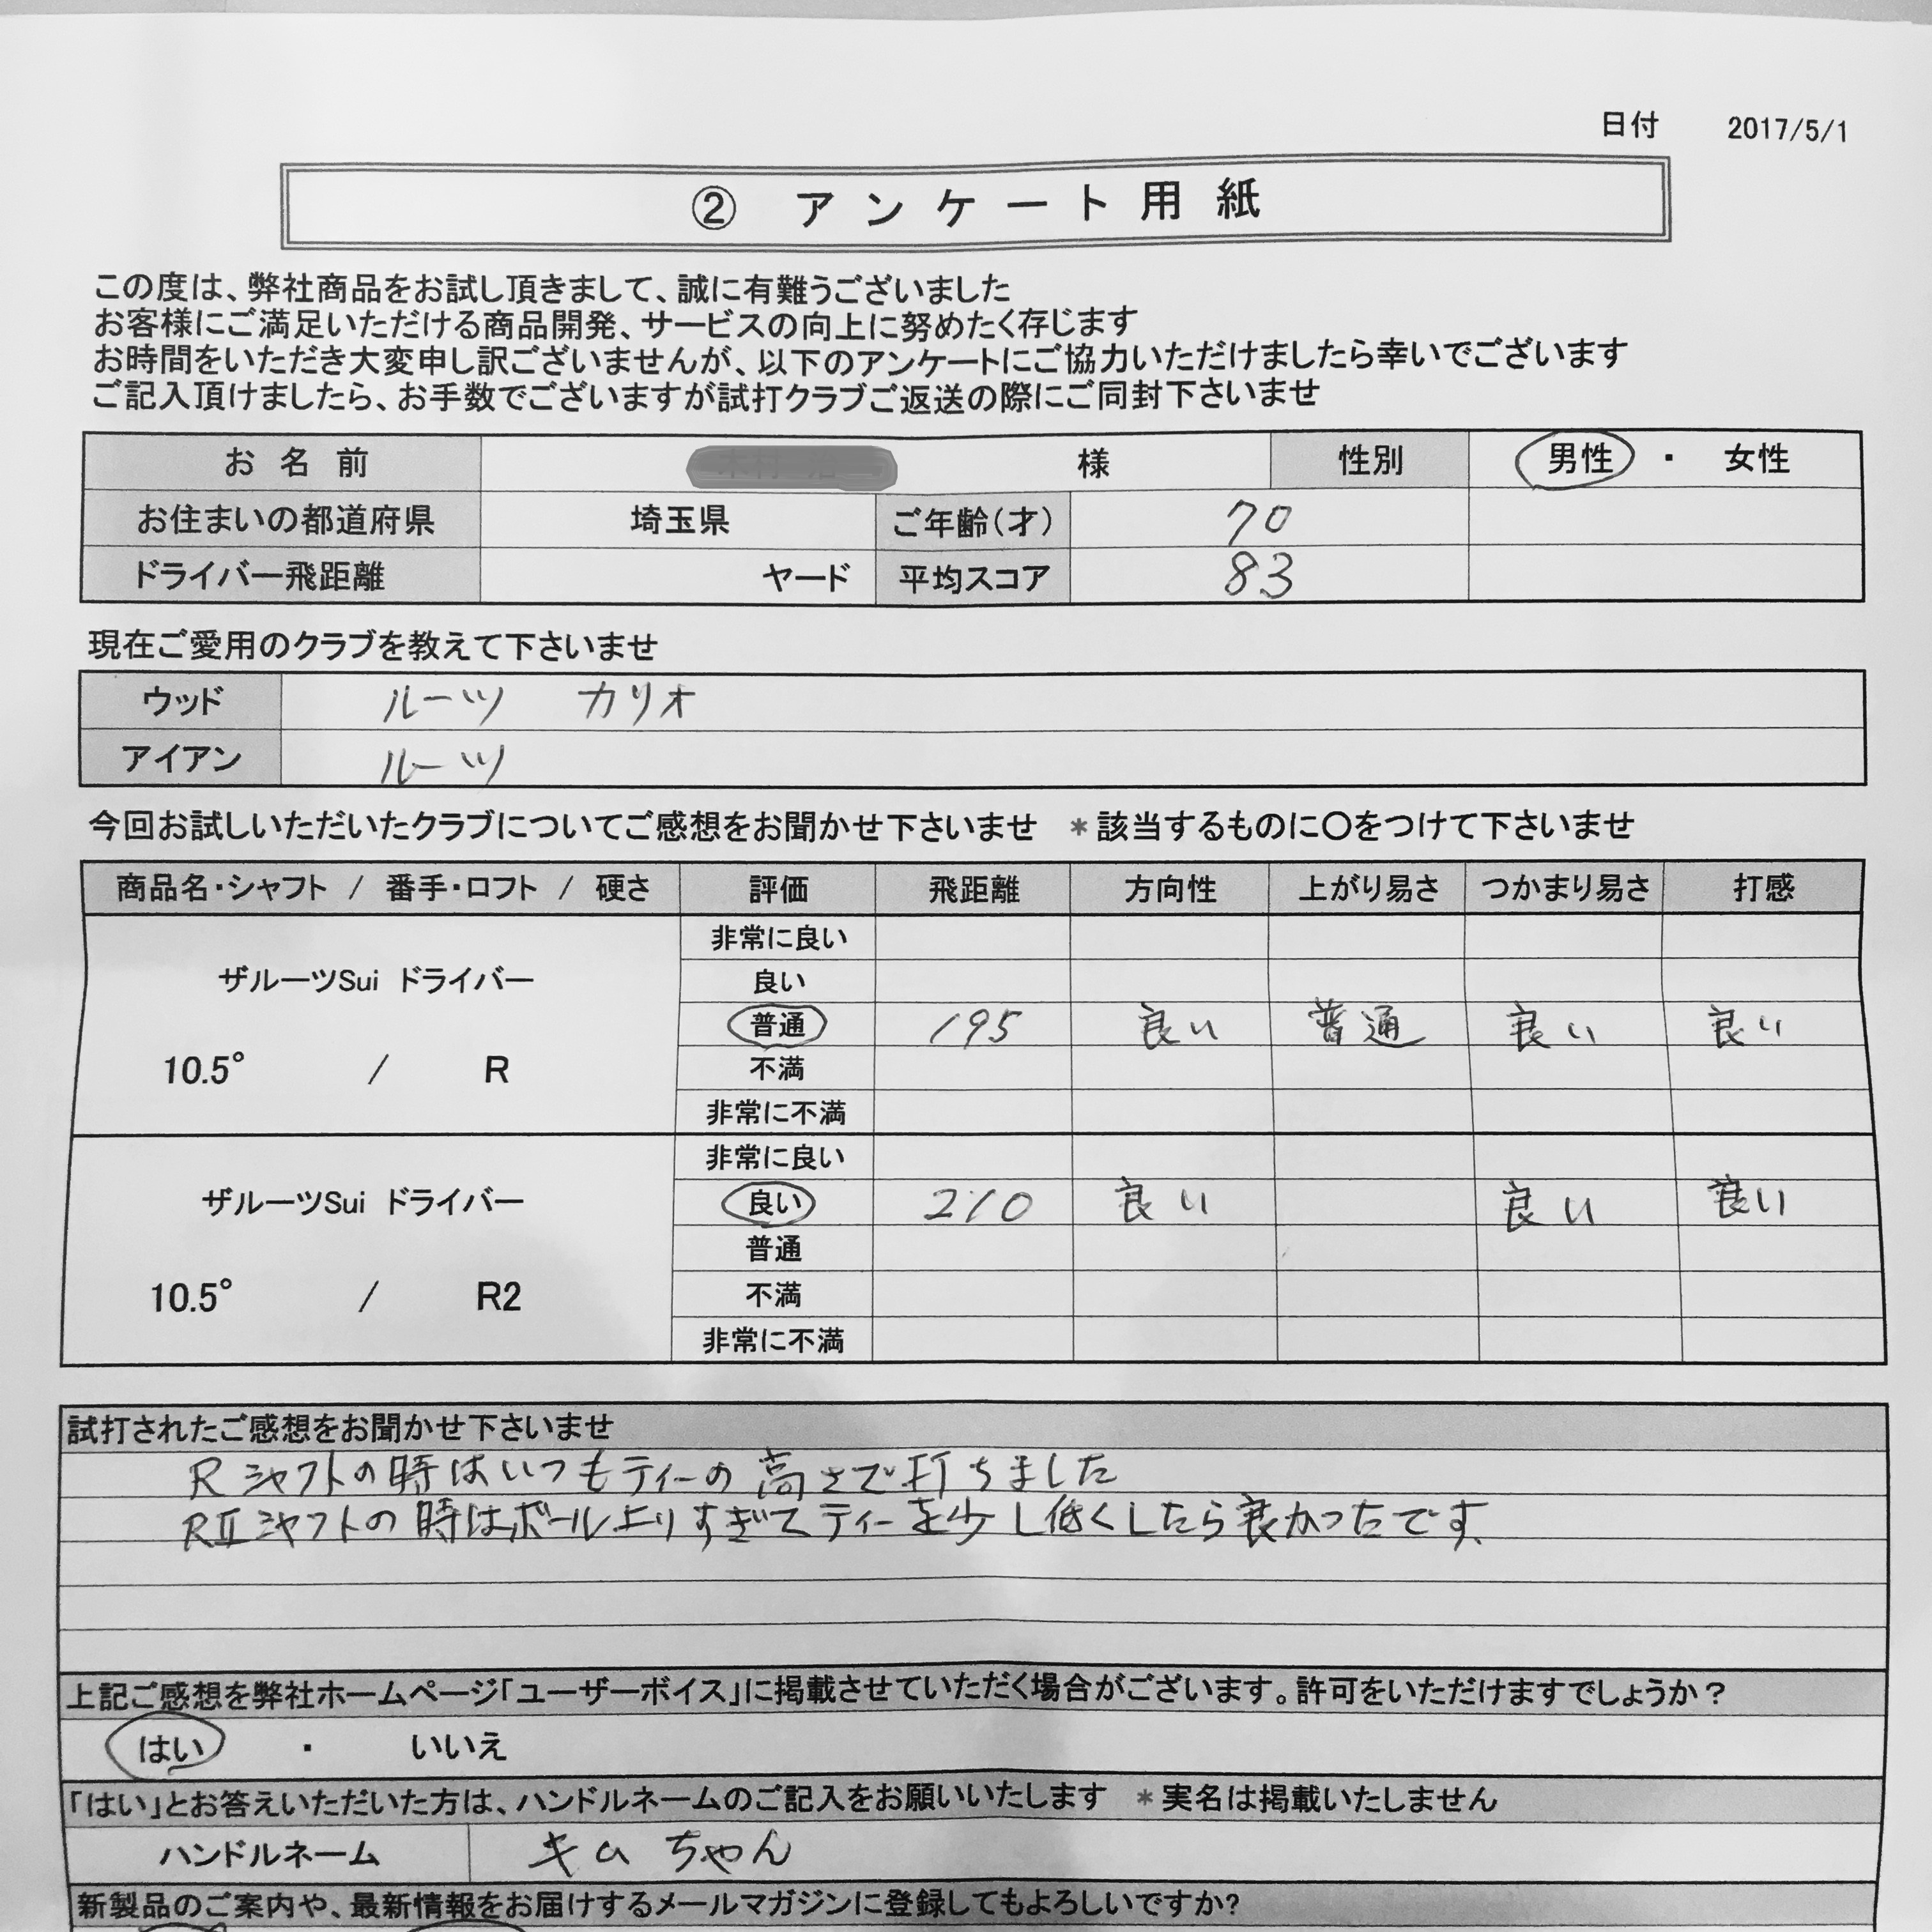 日付 2017/5/1
② アンケート用紙
この度は、弊社商品をお試し頂きまして、誠に有難うございました
お客様にご満足いただける商品開発、サービスの向上に努めたく存じます
お時間をいただき大変申し訳ございませんが、以下のアンケートにご協力いただけましたら幸いでございます
ご記入頂けましたら、お手数でございますが試打クラブご返送の際にご同封下さいませ
お名前 様 性別 男性 ・ 女性
お住まいの都道府県 埼玉県 ご年齢(才) 70
ドライバー飛距離 ヤード 平均スコア 83
現在ご愛用のクラブを教えて下さいませ
ウッド ルーツ カリオ
アイアン ルーツ
今回お試しいただいたクラブについてご感想をお聞かせ下さいませ *該当するものに〇をつけて下さいませ
商品名・シャフト / 番手・ロフト / 硬さ 評価 飛距離 方向性 上がり易さ つかまり易さ 打感
非常に良い
ザルーツSui ドライバー 良い
普通 195 良い 普通 良い 良い
10.5° / R 不満
非常に不満
非常に良い
ザルーツSui ドライバー 良い 210 良い 良い 良い
普通
10.5° / R2 不満
非常に不満
試打されたご感想をお聞かせ下さいませ
Rシャフトの時はいつもティーの高さで打ちました
RⅡシャフトの時はボール上りすぎてティーを少し低くしたら良かったです。
上記ご感想を弊社ホームページ「ユーザーボイス」に掲載させていただく場合がございます。許可をいただけますでしょうか？
はい ・ いいえ
「はい」とお答えいただいた方は、ハンドルネームのご記入をお願いいたします *実名は掲載いたしません
ハンドルネーム キムちゃん
新製品のご案内や、最新情報をお届けするメールマガジンに登録してもよろしいですか?